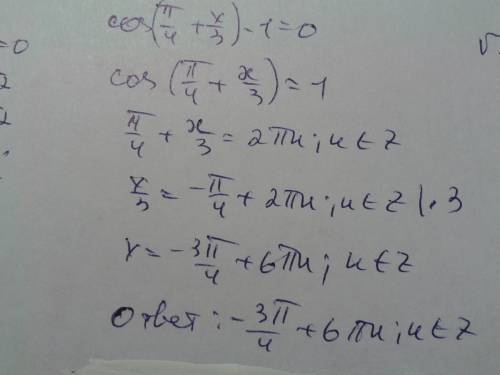 cos(π/4 + x/3) - 1 = 0
cos(π/4 + x/3) = 1
π/4 + x/3 = 2πn; n ∈ Z
x/3 = -π/4 + 2πn; n ∈ Z | · 3
x = -3π/4 + 6πn; n ∈ Z
Ответ: -3π/4 + 6πn; n ∈ Z
=0
2
2
√